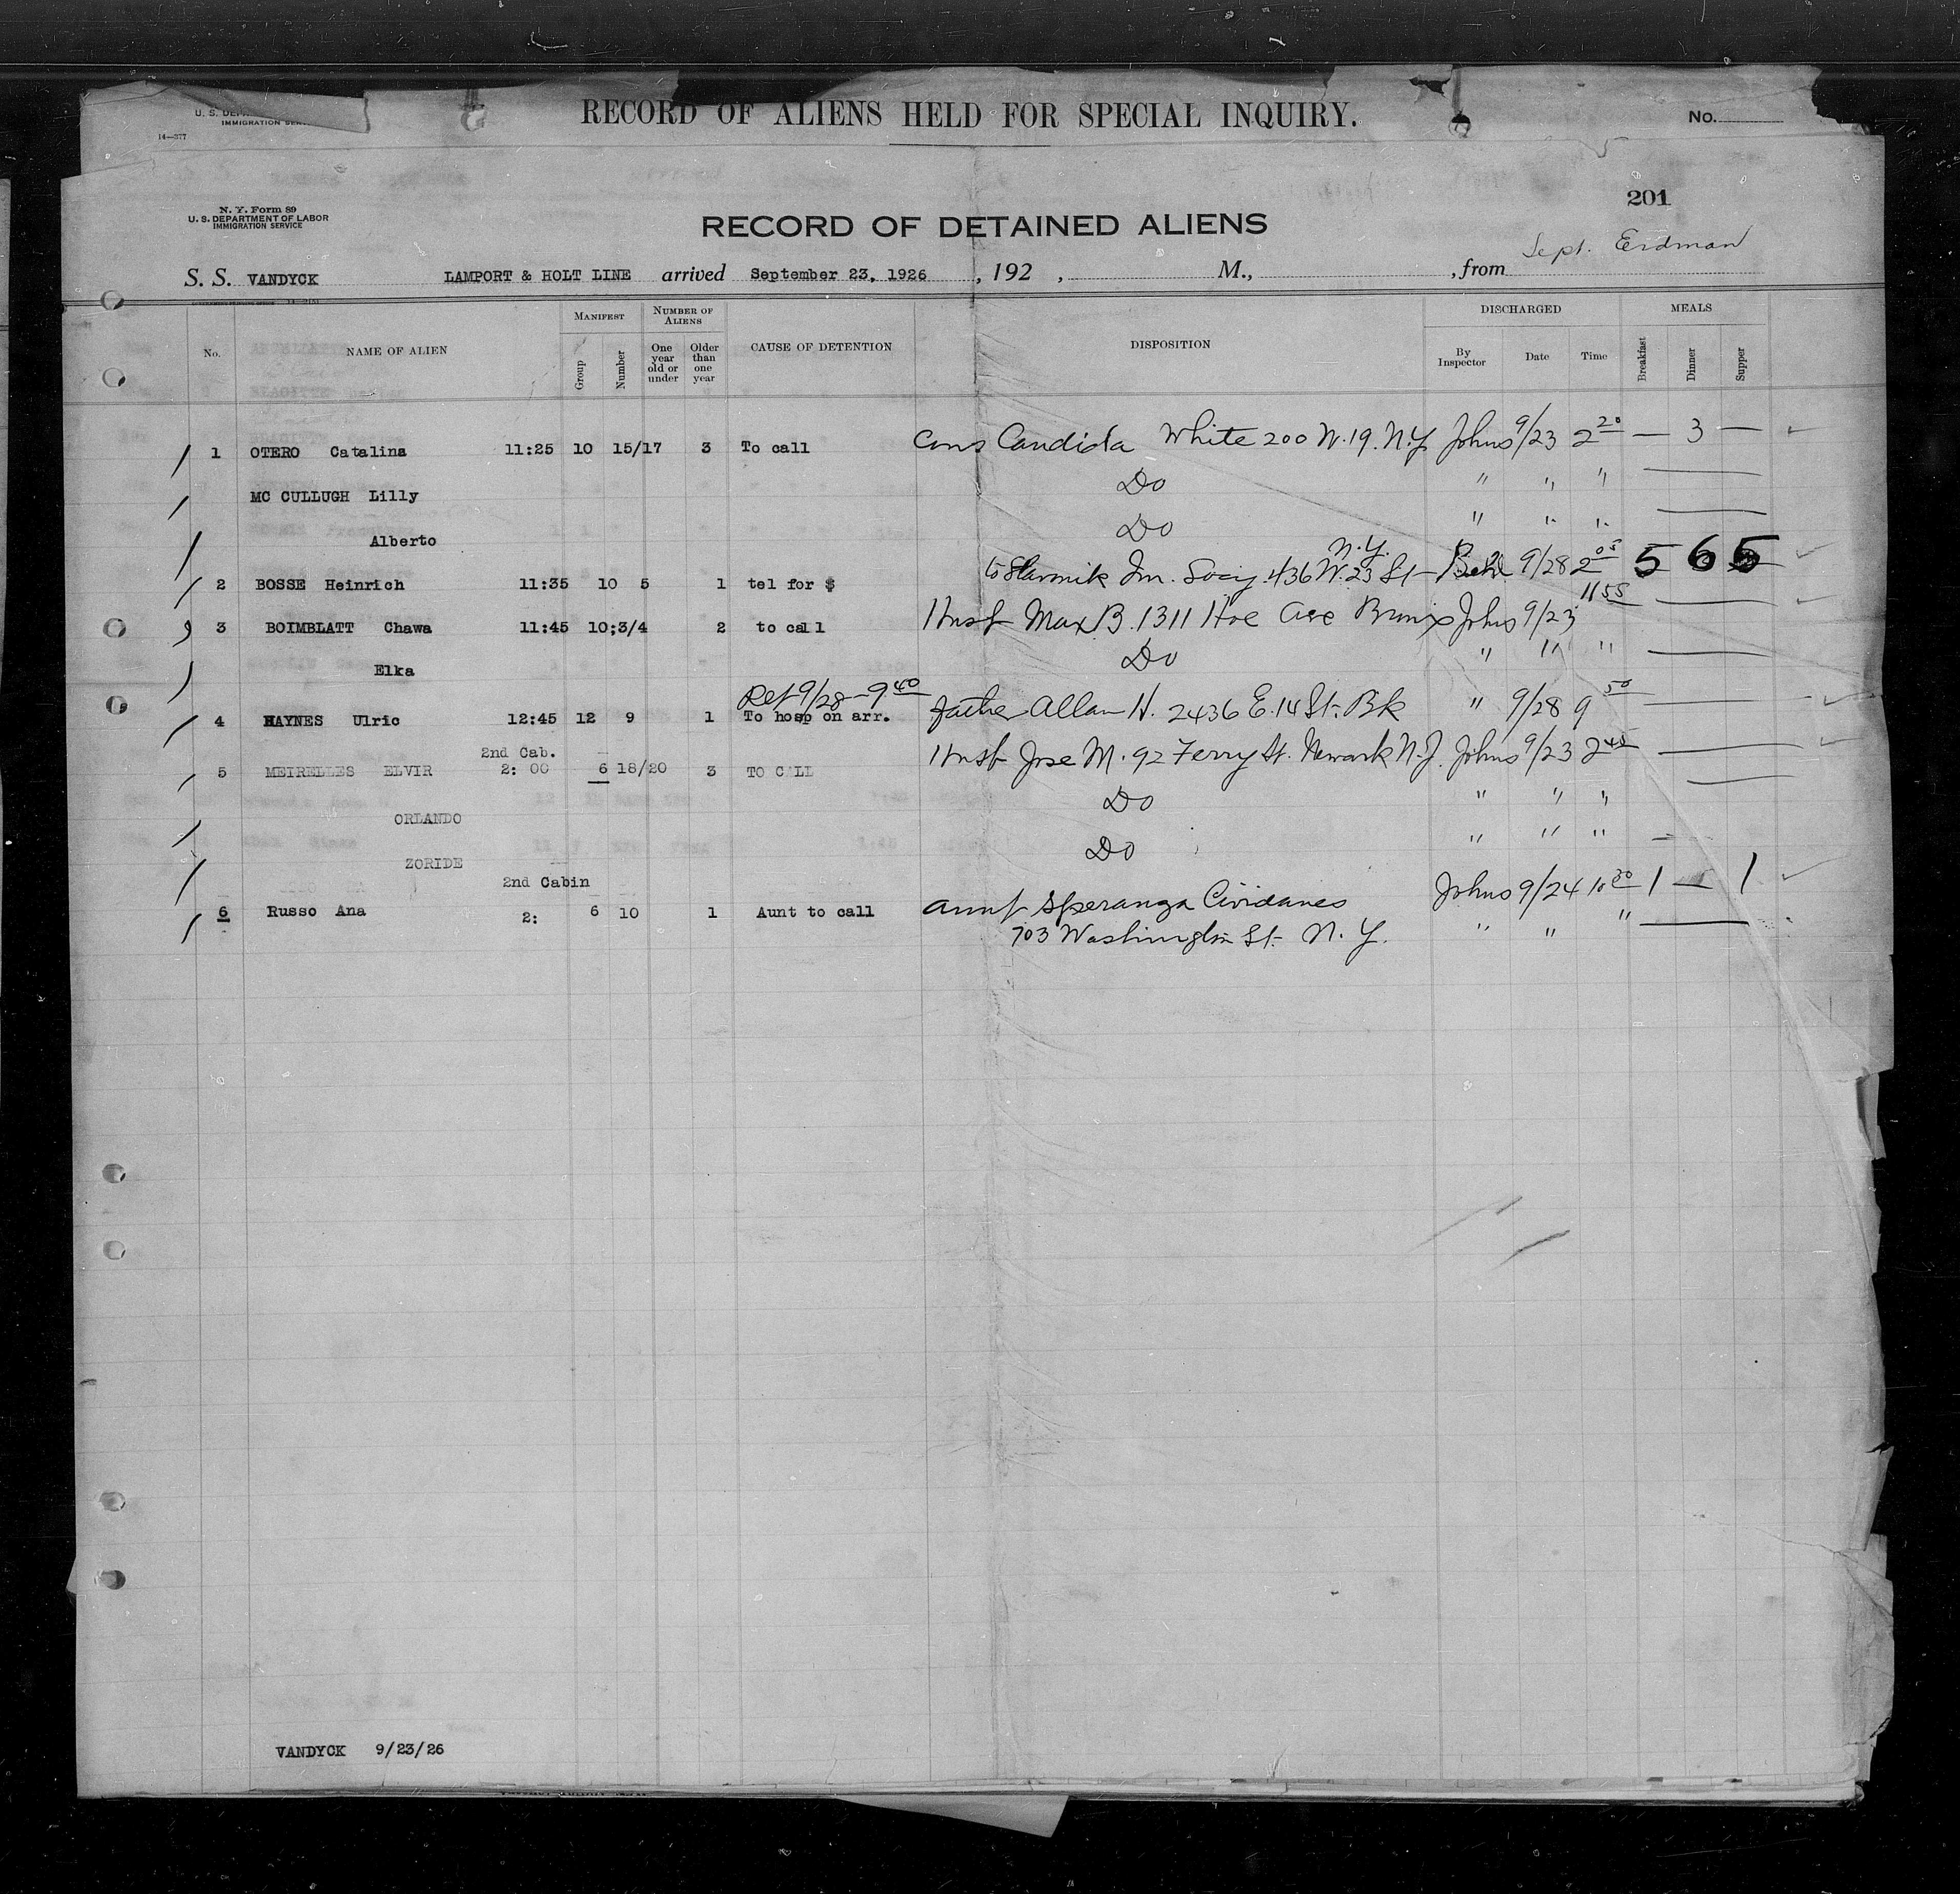 U. S. DEP
IMMIGRATION SER
14—377
RECORD OF ALIENS HELD FOR SPECIAL INQUIRY.
No.
201
N. Y. Form 89
U. S. DEPARTMENT OF LABOR
IMMIGRATION SERVICE
RECORD OF DETAINED ALIENS
Sept. Erdman
S. S. VANDYCK LAMPORT & HOLT LINE arrived September 23, 1926 , 192 , M., , from
No. NAME OF ALIEN MANIFEST Group Number NUMBER OF ALIENS One year old or under Older than one year CAUSE OF DETENTION DISPOSITION DISCHARGED By Inspector Date Time MEALS Breakfast Dinner Supper
1 OTERO Catalina 11:25 10 15/17 3 To call Cons Candida White 200 W. 19. N.Y. Johns 9/23 2 20 — 3 —
MC CULLUGH Lilly Do " " "
Alberto Do " " "
2 BOSSE Heinrich 11:35 10 5 1 tel for $ to Im. Socy. 436 W. 23 St N.Y. 9/28 2 05 5 6 5
3 BOIMBLATT Chawa 11:45 10;3/4 2 to call Husb Max B. 1311 Hoe Ave Bronx Johns 9/23 11 55
Elka Do " " "
4 HAYNES Ulric 12:45 12 9 1 Ret 9/28 — 9 40 To hosp on arr. father Allan H. 2436 E. 14 St. Bk " 9/28 9 50
5 MEIRELLES ELVIR 2nd Cab. 2: 00 6 18/20 3 TO CALL Husb Jose M. 92 Ferry St. Newark N.J. Johns 9/23 2 40
ORLANDO Do " " "
ZORIDE Do " " "
6 Russo Ana 2nd Cabin 2: 6 10 1 Aunt to call aunt Speranza Cividanes Johns 9/24 10 30 1 — 1
703 Washington St. N. Y. " " "
VANDYCK 9/23/26